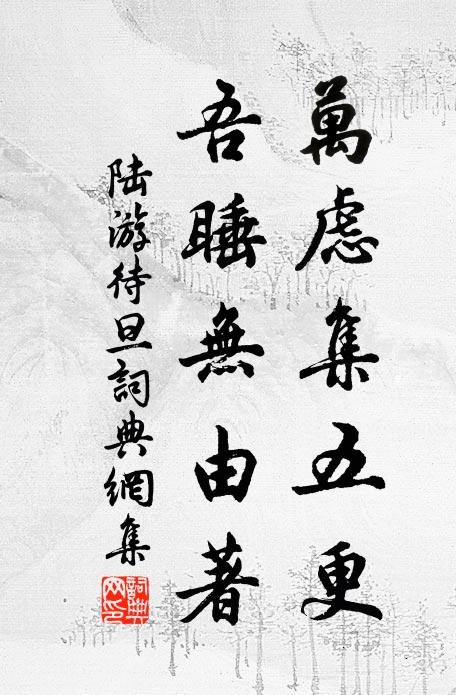 萬慮集五更
吾睡無由著
陸游待旦詞典網集
詞典網印